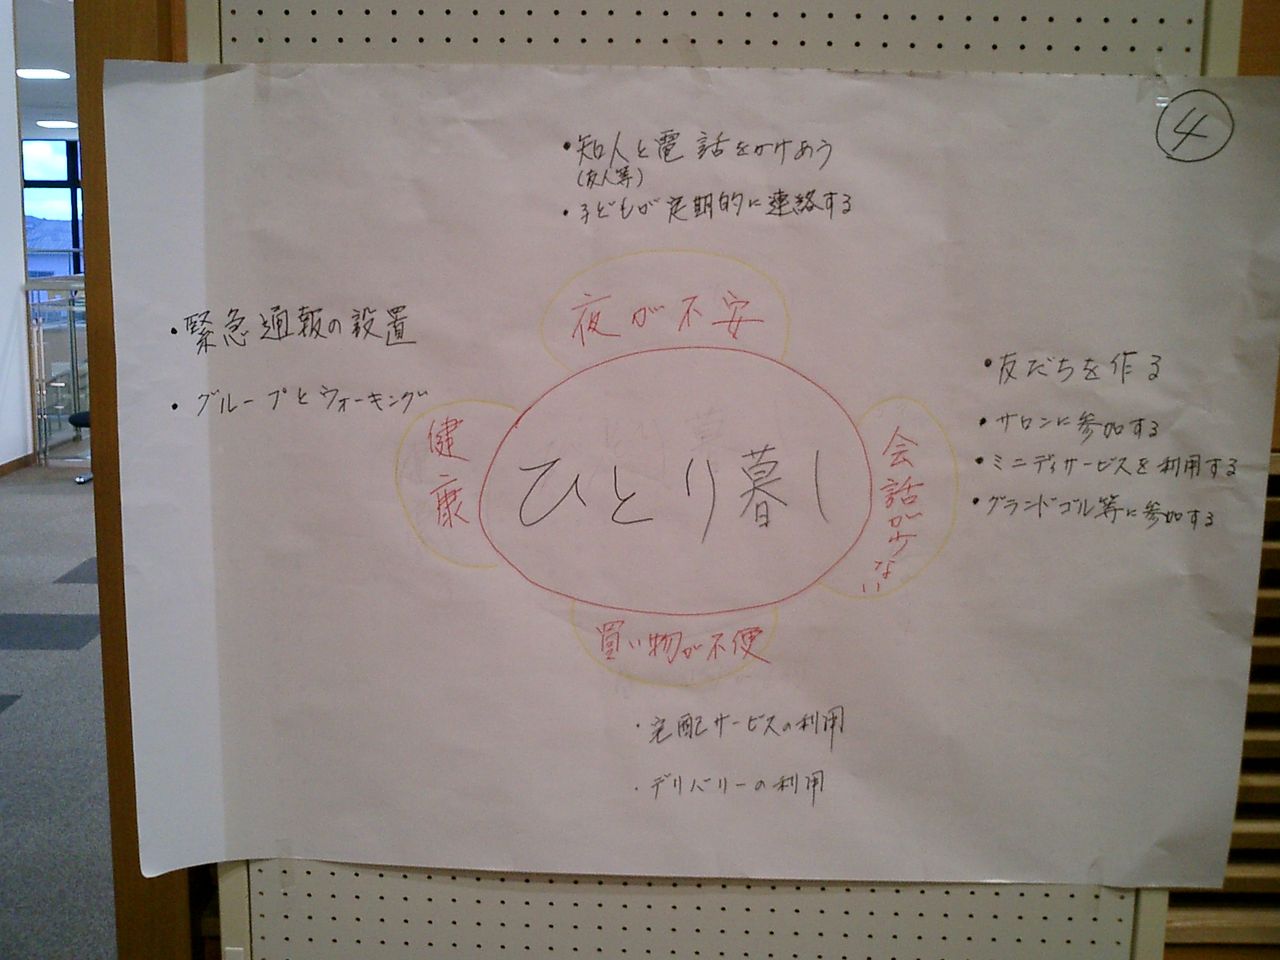 ④
・知人と電話をかけあう
(友人等)
・子どもが定期的に連絡する
夜が不安
・緊急通報の設置
・グループとウォーキング
健康
ひとり暮し
会話が少ない
・友だちを作る
・サロンに参加する
・ミニディサービスを利用する
・グランドゴル等に参加する
買い物が不便
・宅配サービスの利用
・デリバリーの利用